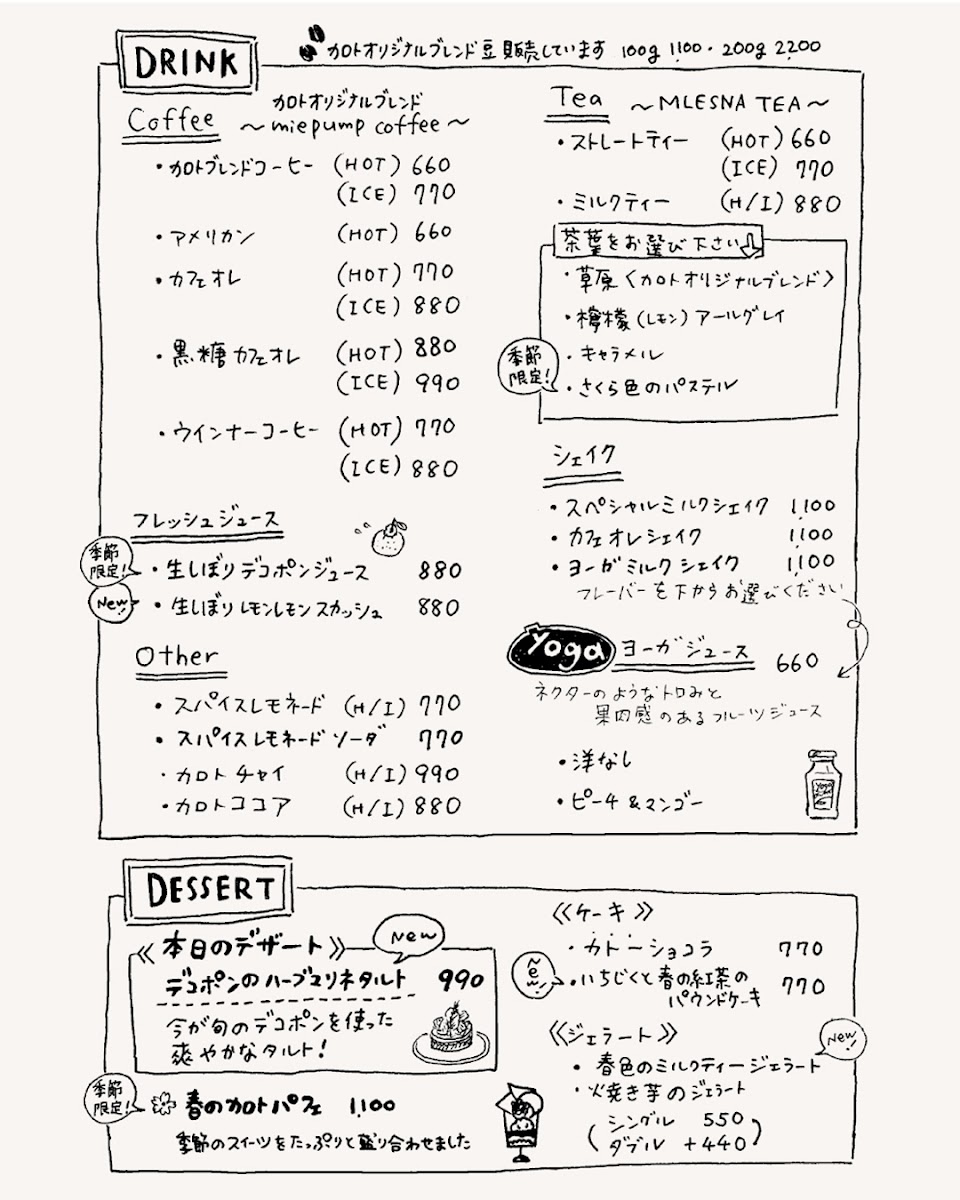 DRINK
カロトオリジナルブレンド豆販売しています 100g 1,100・200g 2,200
Coffee
カロトオリジナルブレンド
～miepump coffee～
・カロトブレンドコーヒー (HOT) 660
(ICE) 770
・アメリカン (HOT) 660
・カフェオレ (HOT) 770
(ICE) 880
・黒糖カフェオレ (HOT) 880
(ICE) 990
・ウインナーコーヒー (HOT) 770
(ICE) 880
フレッシュジュース
季節限定!
・生しぼりデコポンジュース 880
New!
・生しぼりレモンレモンスカッシュ 880
Other
・スパイスレモネード (H/I) 770
・スパイスレモネードソーダ 770
・カロトチャイ (H/I) 990
・カロトココア (H/I) 880
Tea ～MLESNA TEA～
・ストレートティー (HOT) 660
(ICE) 770
・ミルクティー (H/I) 880
茶葉をお選び下さい
・草原〈カロトオリジナルブレンド〉
・檸檬(レモン)アールグレイ
・キャラメル
季節限定!
・さくら色のパステル
シェイク
・スペシャルミルクシェイク 1,100
・カフェオレシェイク 1,100
・ヨーガミルクシェイク 1,100
フレーバーを下からお選びください
Yoga ヨーガジュース 660
ネクターのようなトロみと
果肉感のあるフルーツジュース
・洋なし
・ピーチ&マンゴー
DESSERT
《本日のデザート》
New
デコポンのハーブマリネタルト 990
今が旬のデコポンを使った
爽やかなタルト!
季節限定!
春のカロトパフェ 1,100
季節のスイーツをたっぷりと盛り合わせました
《ケーキ》
・ガトーショコラ 770
New!
・いちじくと春の紅茶の
パウンドケーキ 770
《ジェラート》
New!
・春色のミルクティージェラート
・火焼き芋のジェラート
(シングル 550
ダブル +440)